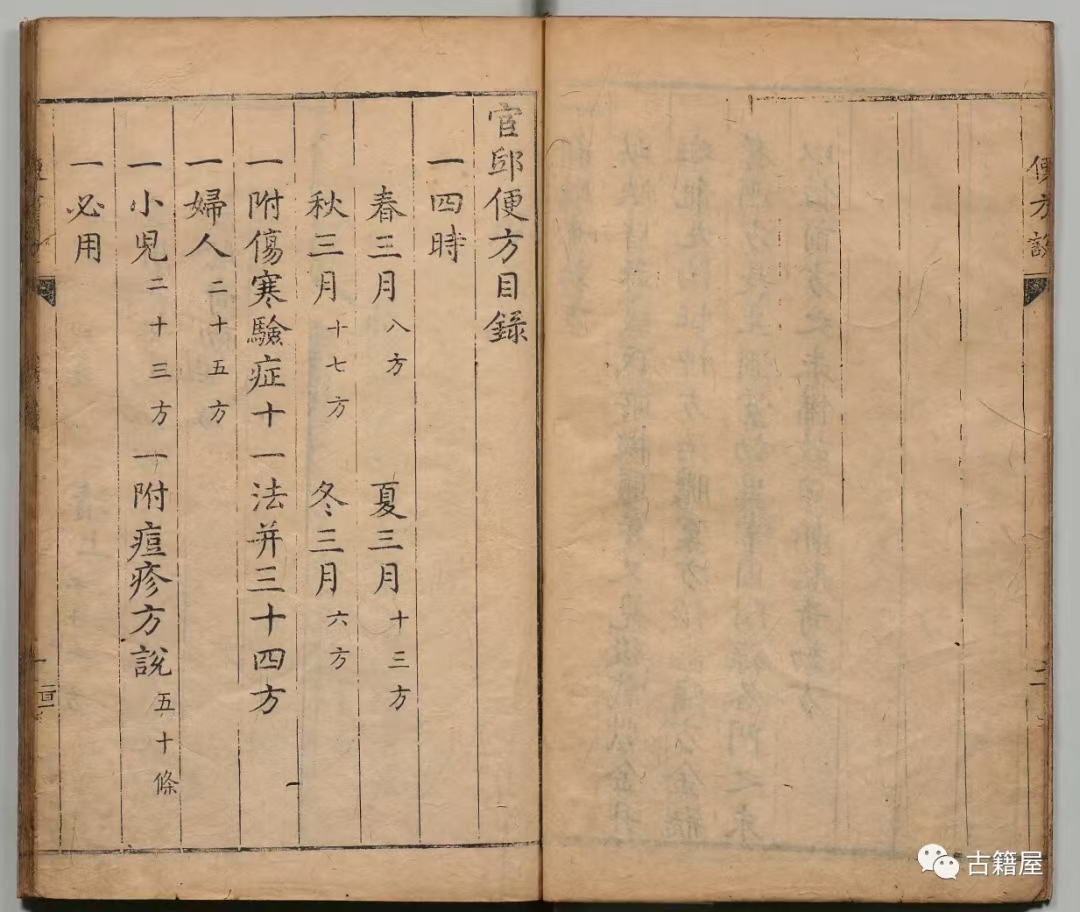 便方說
二
官邸便方目錄
一四時
春三月八方 夏三月十三方
秋三月十七方 冬三月六方
一附傷寒驗症十一法并三十四方
一婦人二十五方
一小兒二十三方一附痘疹方說五十條
一必用
古籍屋